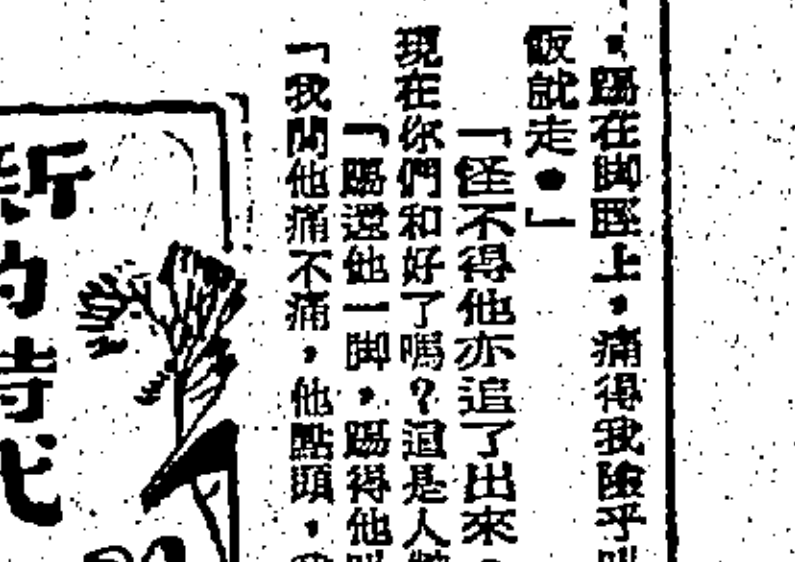 ，踢在脚脛上，痛得我險乎叫
飯就走。」
「怪不得他亦追了出來，
現在你們和好了嗎？這是人
「踢還他一脚，踢得他叫
「我問他痛不痛，他點頭，我
新的時代